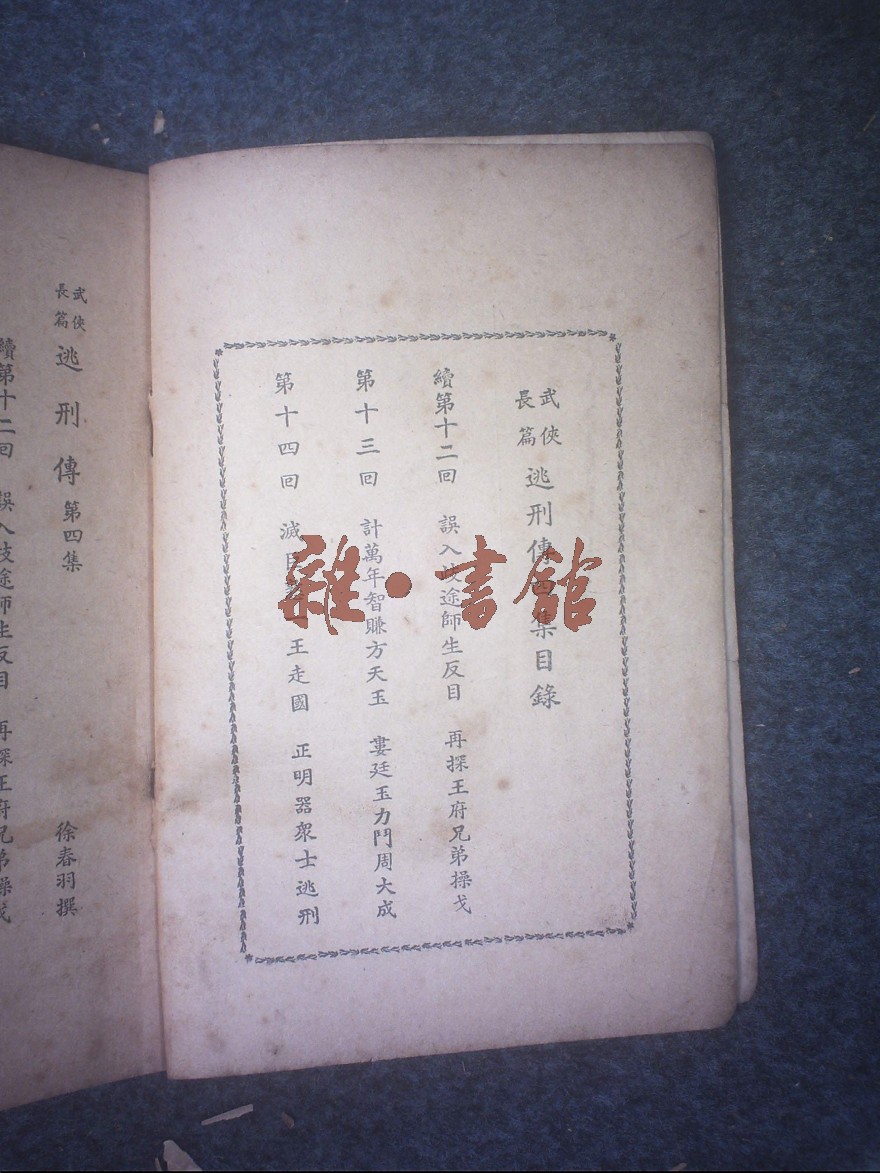 武俠長篇 逃刑傳四集目錄
續第十二回 誤入歧途師生反目 再探王府兄弟操戈
第十三回 計萬年智賺方天玉 婁廷玉力鬥周大成
第十四回 滅 王走國 正明器眾士逃刑
武俠長篇 逃刑傳 第四集 徐春羽撰
續第十二回 誤入歧途師生反目 再探王府兄弟操戈
雜·書館